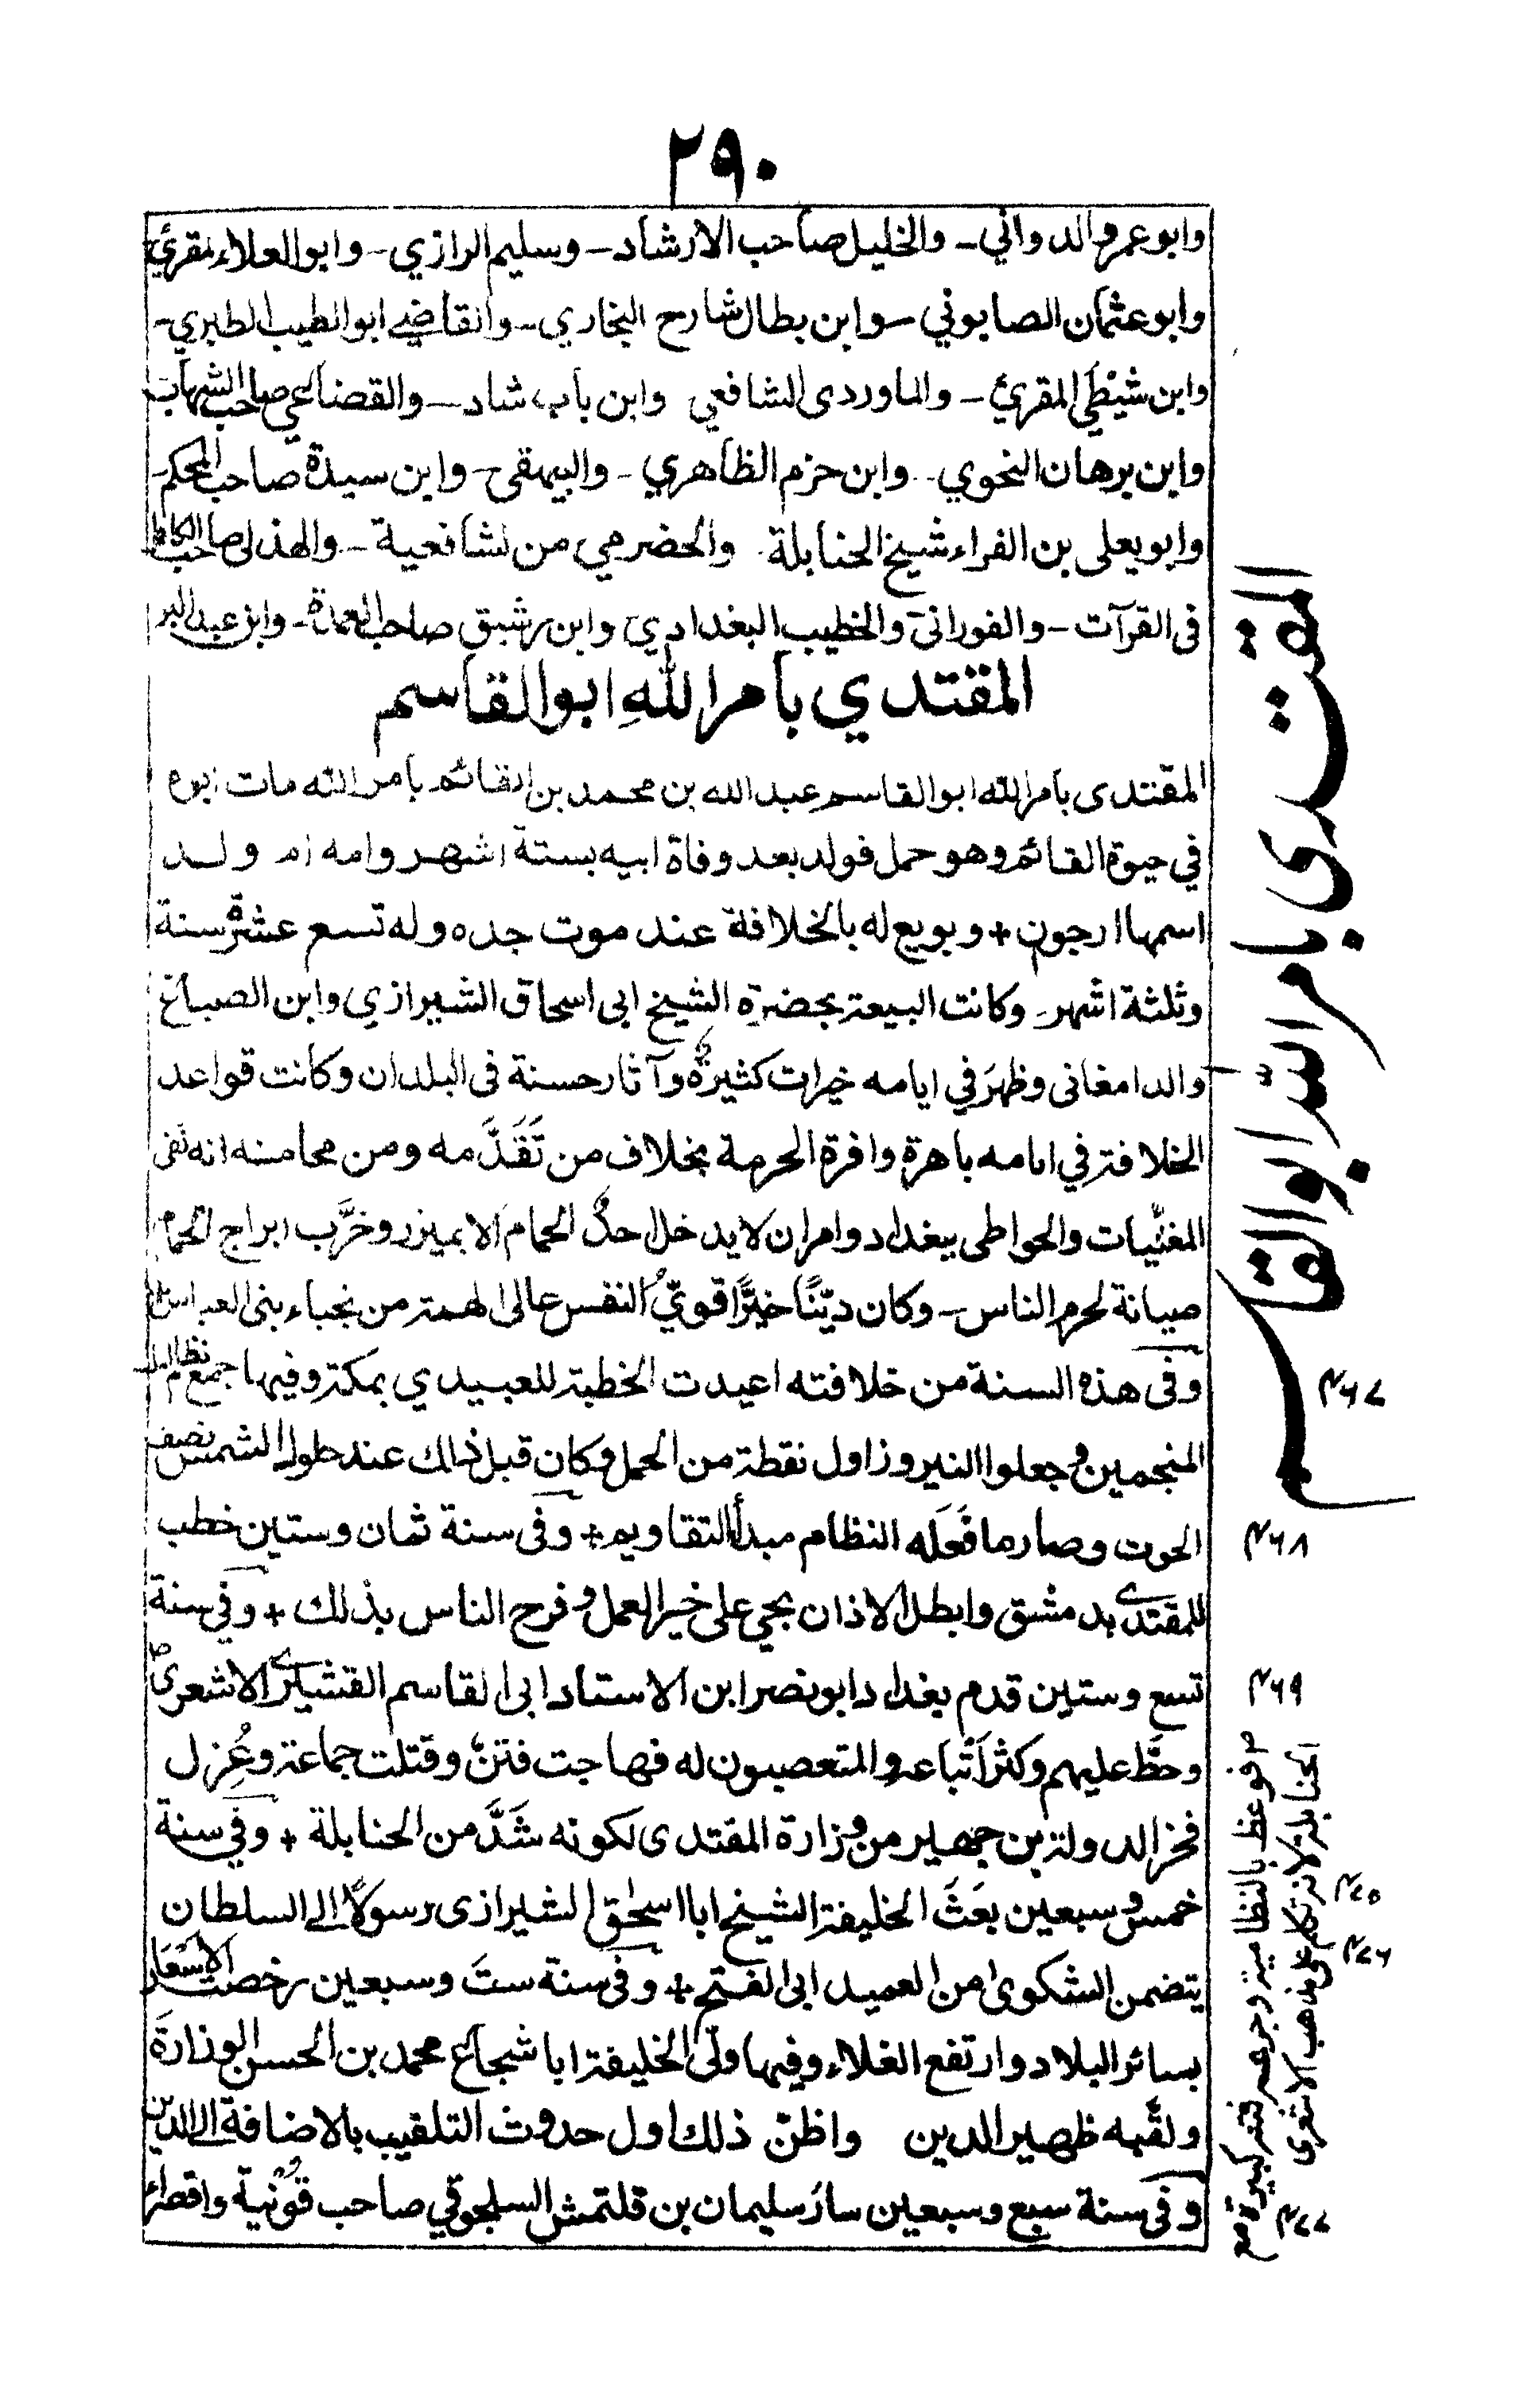 ٢٩٠
وابو عمر والدواني - والخليل صاحب الارشاد - وسليم الرازي - وابو العلاء المقرئ
وابو عثمان الصابوني - وابن بطال شارح البخاري - والقاضي ابو الطيب الطبري -
وابن شيْطَي المقرئ - والماوردى الشافعي وابن باب شاد - والقضاعي صاحب الشهاب
وابن برهان النحوي - وابن حزم الظاهري - والبيهقى - وابن سيدة صاحب المحكم -
وابو يعلى بن الفراء شيخ الحنابلة والحضرمي من الشافعية - والهذلى صاحب الكامل
فى القرآت - والفورانى والخطيب البغدادي وابن رشيق صاحب العمدة - وابن عبد البر
المقتدي بامر اللهِ ابو القاسم
المقتدى بامر الله ابو القاسم عبد الله بن محمد بن القائم بامر الله مات ابوه
في حيوة القائم وهو حمل فولد بعد وفاة ابيه بستة اشهر وامه ام ولد
اسمها ارجون + وبويع له بالخلافة عند موت جده وله تسع عشرة سنة
وثلثة اشهر - وكانت البيعة بحضرة الشيخ ابى اسحاق الشيرازي وابن الصباغ
والدامغانى وظهرَ في ايامه خيرات كثيرةٌ وآثار حسنة فى البلدان وكانت قواعد
الخلافة في ايامه باهرة وافرة الحرمة بخلاف من تَقَدَّمه ومن محاسنه انه نفى
المغنّيات والحواطى ببغداد وامر ان لا يدخل احدٌ الحمام الا بميزر وخرَّب ابراج الحمام
صيانة لحرم الناس - وكان ديّنًا خيّرًا قويّ النفس عالى الهمة من نجباء بنى العباس
وفى هذه السنة من خلافته اعيدت الخطبة للعبيدي بمكة وفيها جمع نظام الملك
المنجمين وجعلوا النيروز اول نقطة من الحمل وكان قبل ذلك عند حلول الشمس نصف
الحوت وصار ما فَعَله النظام مبدأ التقاويم + وفى سنة ثمان وستين خطب
للمقتدى بدمشق وابطل الاذان بحي على خير العمل وفرح الناس بذلك + وفي سنة
تسع وستين قدم بغداد ابو نصر ابن الاستاد ابى القاسم القشيري الاشعرى
وحطَّ عليهم وكثر اَتْباعه والمتعصبون له فهاجت فتنٌ وقتلت جماعة وعُزِل
فخر الدولة بن جهير من وزارة المقتدى لكونه شَدَّ من الحنابلة + وفي سنة
خمس وسبعين بَعَثَ الخليفة الشيخ ابا اسحٰق الشيرازى رسولًا الى السلطان
يتضمن الشكوى من العميد ابى الفتح + وفى سنة ستَ وسبعين رخصت الاَسْعَار
بسائر البلاد وارتفع الغلاء وفيها ولّى الخليفة ابا شجاع محمد بن الحسن الوزارةَ
ولقّبه ظهير الدين واظنّ ذلك اول حدوث التلقيب بالاضافة الى الدين
وفى سنة سبع وسبعين سارَ سليمان بن قلتمش السلجوقي صاحب قُوْنية واقصراء
المقتدى بامر الله ابو القاسم
٤٦٧
٤٦٨
٤٦٩
فوعظ بالنظامية وجرى فتنة كبيرة مع
الحنابلة لانه تكلم على مذهب الاشعرى
٤٧٥
٤٧٦
٤٧٧